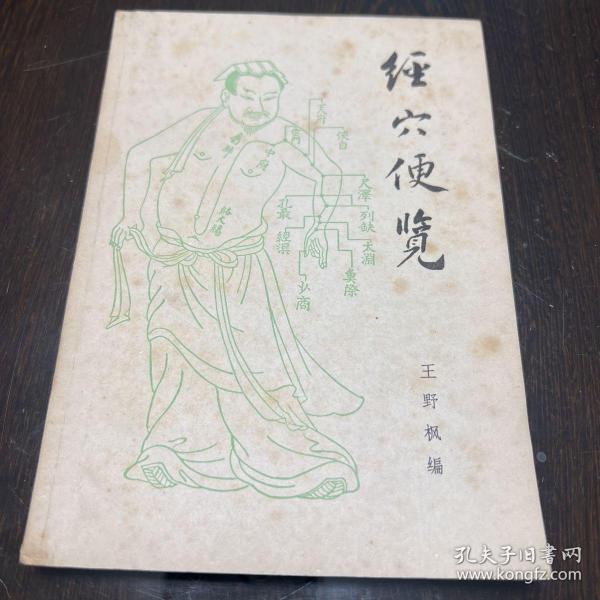 經穴便覽
王野枫编
天府
侠白
雲門
中府
尺澤
列缺
孔最
經渠
太淵
魚際
少商
孔夫子旧书网
www.kongfz.com